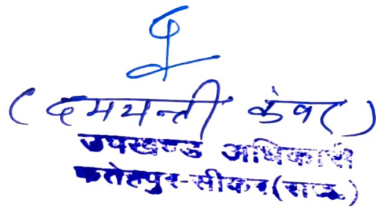 (दमयन्ती कंवर)
उपखण्ड अधिकारी
फतेहपुर-सीकर (राज.)